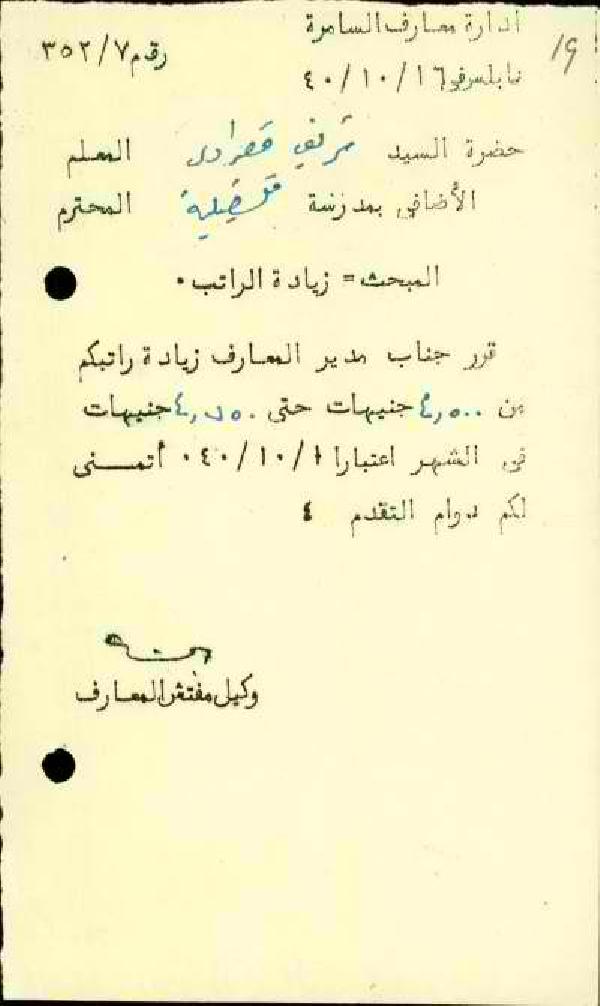 19
أدارة معارف السامرة
رقم ٣٥٢/٧
نابلس في ٤٠/١٠/١٦
حضرة السيد شريف المعلم
الأضافي بمدرسة المحترم
المبحث = زيادة الراتب ٠
قرر جناب مدير المعارف زيادة راتبكم
من ٤,٥٠٠ جنيهات حتى ٤,٧٥٠ جنيهات
في الشهر اعتبارا ٠٤٠/١٠/١ أتمنى
لكم دوام التقدم ٤
وكيل مفتش المعارف